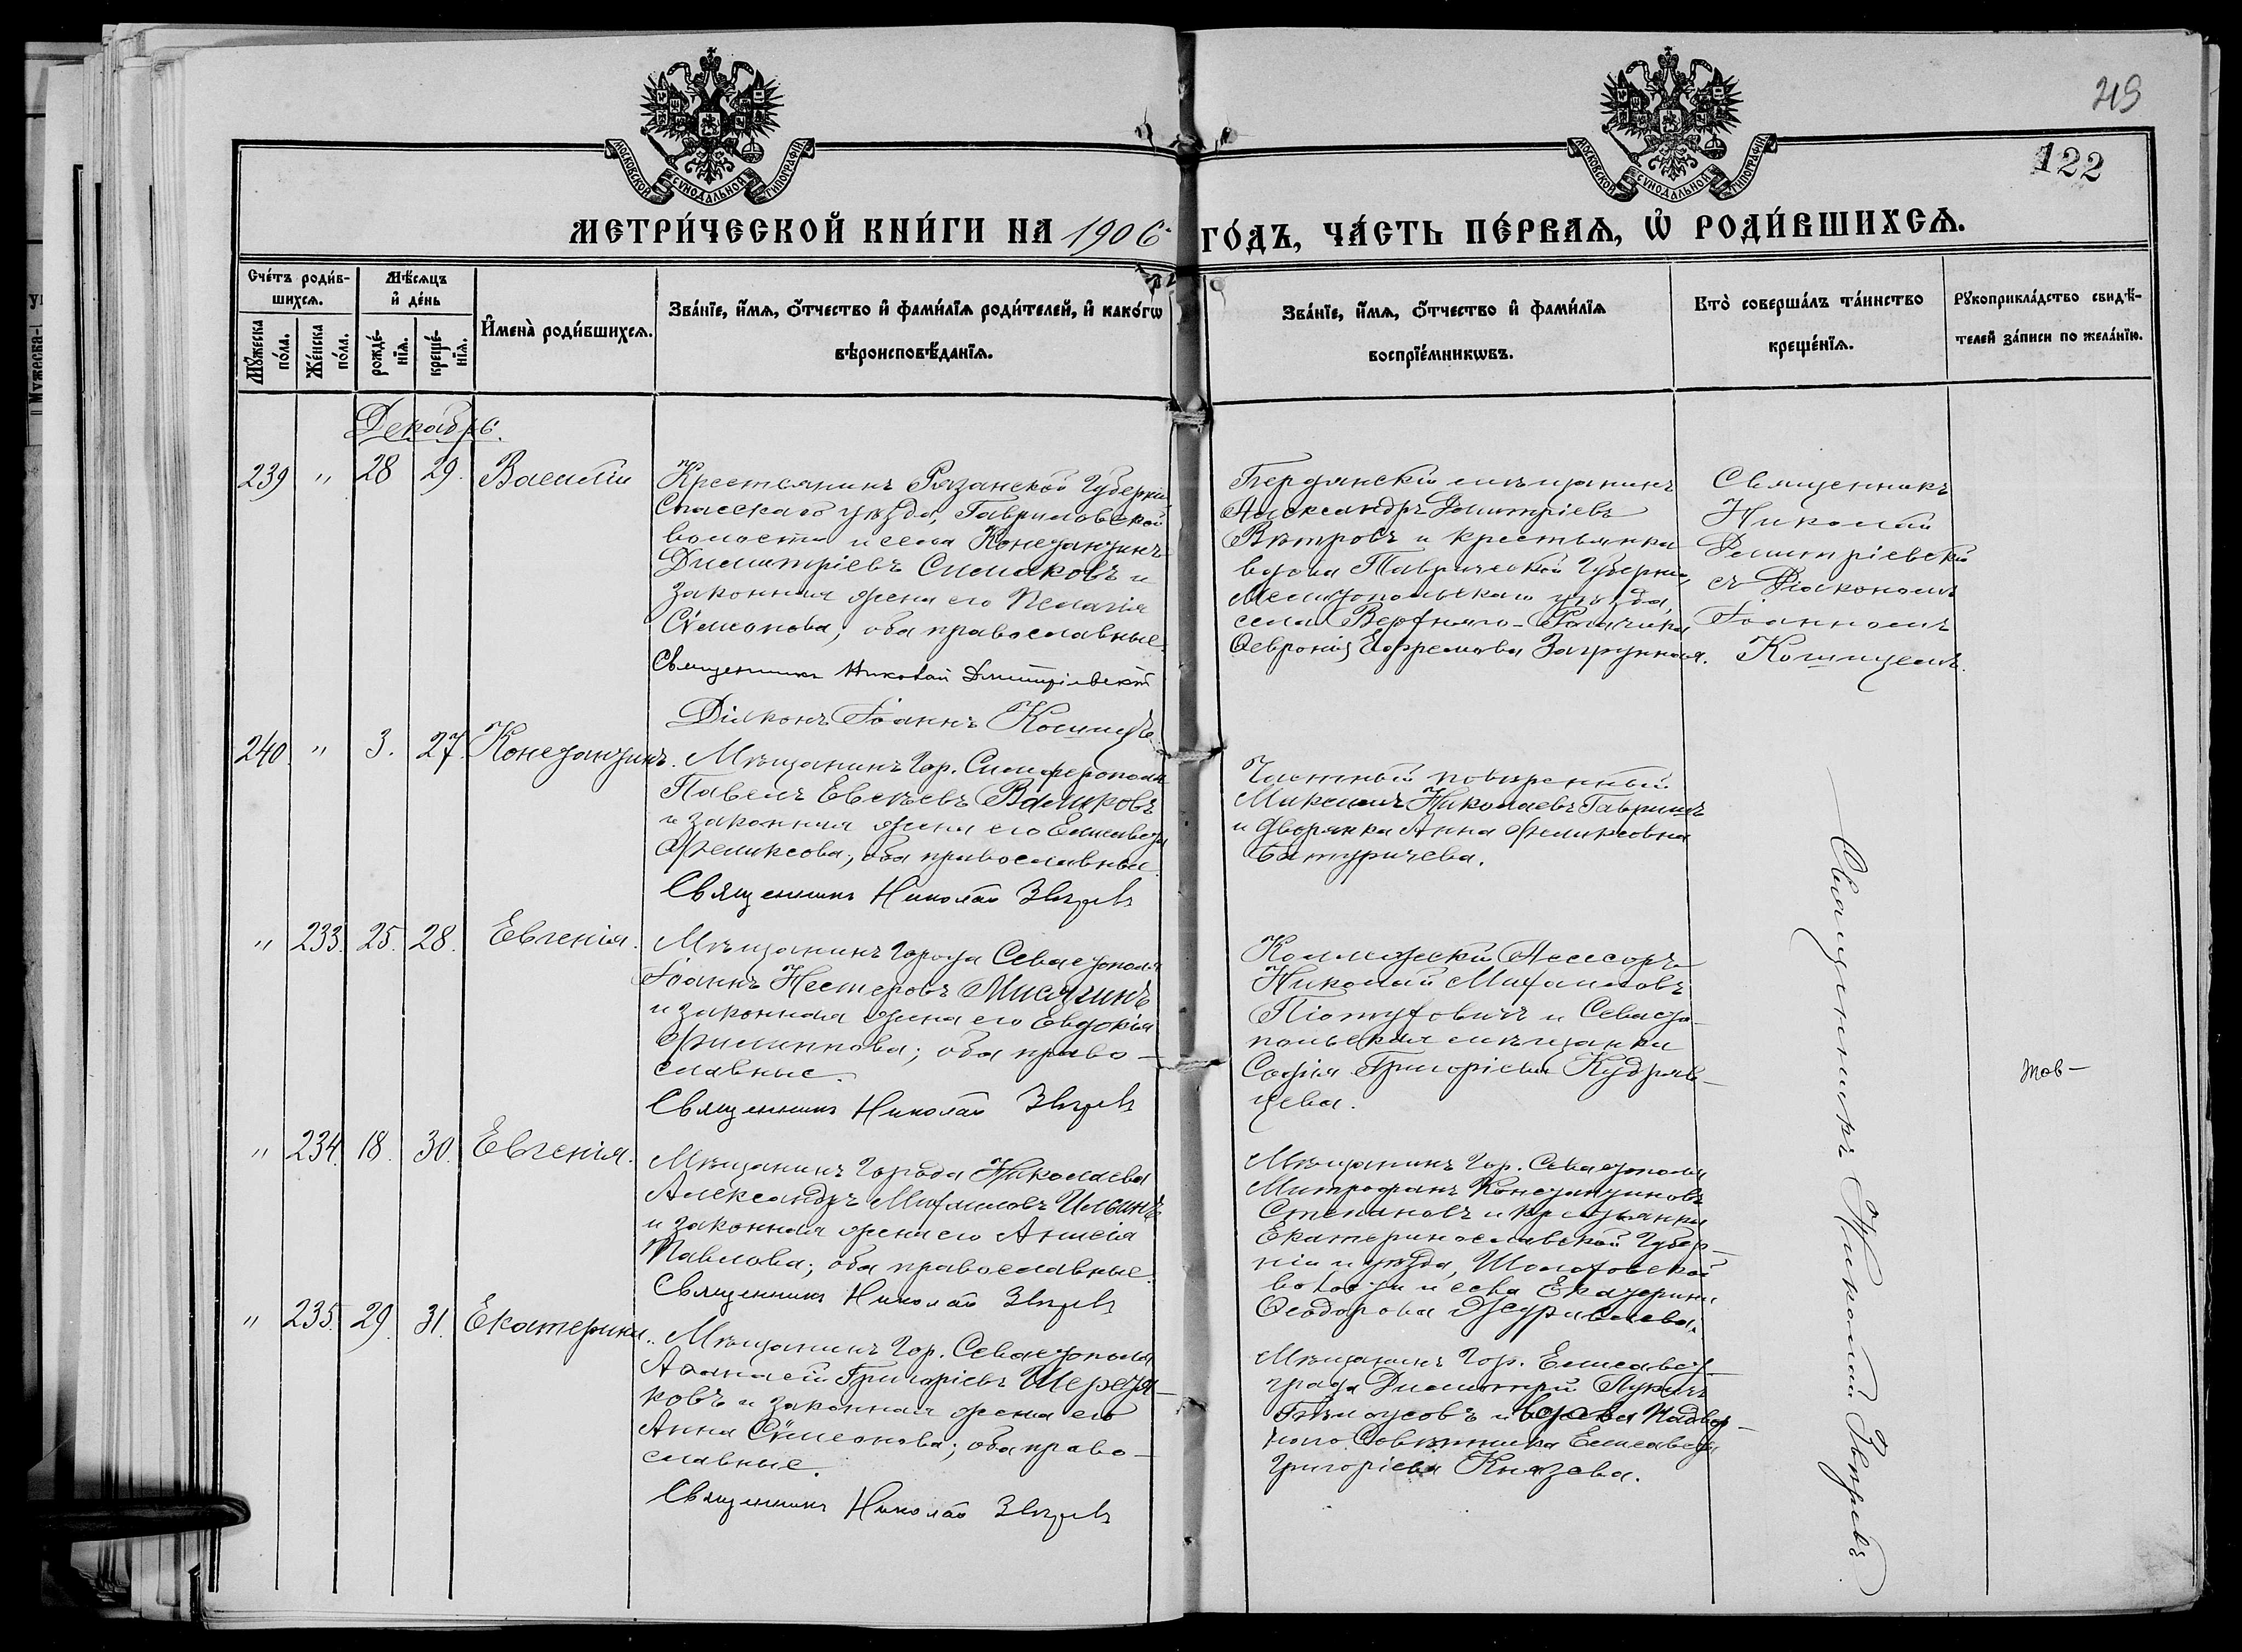 219
122
МОСКОВСКОЙ СѴНОДАЛЬНОЙ ТИПОГРАФІИ
МОСКОВСКОЙ СѴНОДАЛЬНОЙ ТИПОГРАФІИ
МЕТРИ́ЧЕСКОЙ КНИ́ГИ НА 1906 ГО́ДЪ, ЧА́СТЬ ПЕ́РВАѦ, Ѡ҆ РОДИ́ВШИХСѦ.
Сче́тъ роди́в-
шихсѧ.
Мꙋ́жеска по́ла.
Же́нска по́ла.
Мѣ́сѧцъ
и҆ де́нь
рожде́-
нїѧ.
креще́-
нїѧ.
И҆мена̀ роди́вшихсѧ.
Зва́нїе, и҆́мѧ, ѻ҆́тчество и҆ фами́лїѧ роди́телей, и҆ како́гѡ
вѣроисповѣ́данїѧ.
Зва́нїе, и҆́мѧ, ѻ҆́тчество и҆ фами́лїѧ
воспрїе́мникѡвъ.
Кто̀ соверша́лъ та́инство
креще́нїѧ.
Рꙋкоприкла́дство свидѣ́-
телей за́писи по жела́нїю.
Декабрь.
239 " 28 29. Василій
Крестьянинъ Рязанской Губерніи
Спасскаго уѣзда, Гавриловской
волости и села Константинъ
Димитріевъ Симаковъ и
законная жена его Пелагія
Сѵмеонова; оба православные.
Священникъ Николай Дмитріевскій
Діаконъ Іоаннъ Кошицъ
Бердянскій мѣщанинъ
Александръ Димитріевъ
Вѣтровъ и крестьянка
вдова Таврической Губерніи,
Мелитопольскаго уѣзда,
села Верхняго-Рогачика
Февронія Ефремова
Священникъ
Николай
Димитріевскій
съ Діакономъ
Іоанномъ
Кошицемъ.
240 " 3. 27. Константинъ.
Мѣщанинъ Гор. Симферополя
Павелъ Евсѣевъ Валиковъ
и законная жена его Елисавета
Феликсова; оба православные.
Священникъ Николай Звѣревъ
Частный повѣренный
Николаевъ Гавришъ
и дворянка Анна Феликсовна
Батуричева.
" 233. 25. 28. Евгенія.
Мѣщанинъ Города Севастополя
Іоаннъ Нестеровъ Мисягинъ
и законная жена его Евдокія
Филиппова; оба право-
славные.
Священникъ Николай Звѣревъ
Коллежскій Асессоръ
Николай Михаиловъ
Піотуховичъ и Севасто-
польская мѣщанка
Софія Григоріева Кудряв-
цева.
" 234. 18. 30. Евгенія.
Мѣщанинъ Города Николаева
Александръ Михаиловъ Ильинъ
и законная жена его Анисія
Павлова; оба православные.
Священникъ Николай Звѣревъ
Мѣщанинъ Гор. Севастополя
Митрофанъ Константиновъ
Степановъ и крестьянка
Екатеринославской Губер-
ніи и уѣзда, Шолоховской
волости и села Екатерина
Феодорова Журавлева.
" 235. 29. 31. Екатерина.
Мѣщанинъ Гор. Севастополя
Аѳанасій Григоріевъ Шередя-
ковъ и законная жена его
Анна Сѵмеонова; оба право-
славные.
Священникъ Николай Звѣревъ
Мѣщанинъ Гор. Елисавет-
града Димитрій Лукинъ
Бѣлоусовъ и вдова Надвор-
наго Совѣтника Елисавета
Григоріева Князева.
Священникъ Николай Звѣревъ